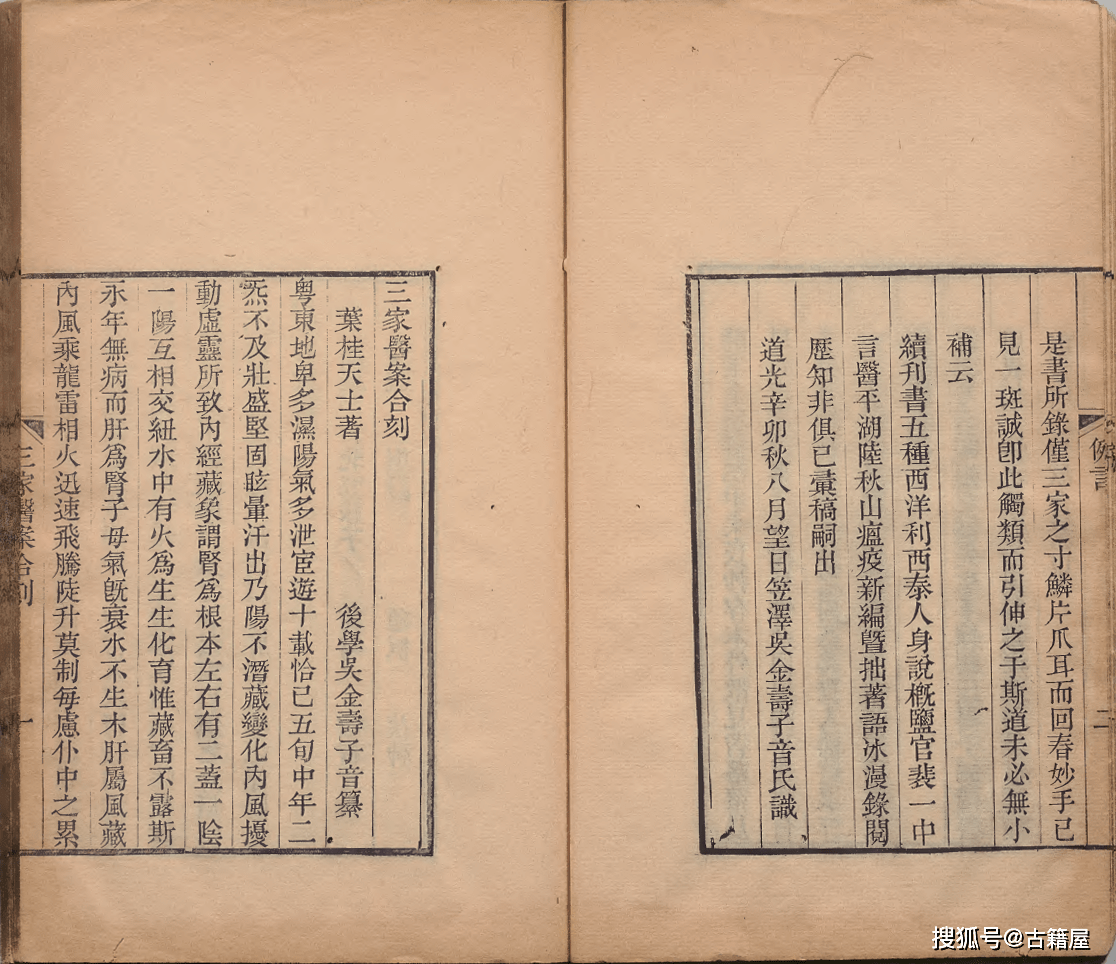 是書所錄僅三家之寸鱗片爪耳而回春妙手已
見一斑誠卽此觸類而引伸之于斯道未必無小
補云
續刊書五種西洋利西泰人身說槪鹽官裴一中
言醫平湖陸秋山瘟疫新編曁拙著語冰漫錄閱
歴知非俱已彙稿嗣出
道光辛卯秋八月望日笠澤吳金壽子音氏識
例言
二
三家醫案合刻
葉桂天士著
後學吳金壽子音纂
粵東地卑多濕陽氣多泄宦遊十載恰已五旬中年二
炁不及壯盛堅固眩暈汗出乃陽不潛藏變化內風擾
動虛靈所致內經藏象謂腎爲根本左右有二蓋一陰
一陽互相交紐水中有火爲生生化育惟藏畜不露斯
永年無病而肝爲腎子母氣旣衰水不生木肝屬風藏
內風乘龍雷相火迅速飛騰陡升莫制每慮仆中之累
三家醫案合刻
一
搜狐号@古籍屋